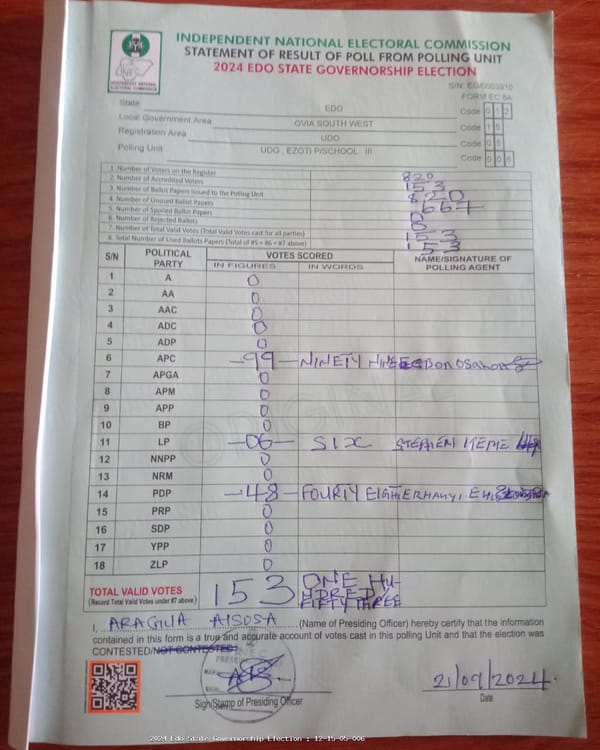 INDEPENDENT NATIONAL ELECTORAL COMMISSION
STATEMENT OF RESULT OF POLL FROM POLLING UNIT
2024 EDO STATE GOVERNORSHIP ELECTION
INEC
INDEPENDENT NATIONAL ELECTORAL COMMISSION
FORM EC 8A
State EDO Code 012
Local Government Area OVIA SOUTH WEST Code 15
Registration Area UDO Code 05
Polling Unit UDO, EZOTI P/SCHOOL III Code 006
1. Number of Voters on the Register 820
2. Number of Accredited Voters 153
3. Number of Ballot Papers Issued to the Polling Unit 820
4. Number of Unused Ballot Papers 667
5. Number of Spoiled Ballot Papers 0
6. Number of Rejected Ballots 0
7. Number of Total Valid Votes (Total Valid Votes cast for all parties) 153
8. Total Number of Used Ballots Papers (Total of #5 + #6 + #7 above) 153
S/N POLITICAL PARTY VOTES SCORED NAME/SIGNATURE OF POLLING AGENT
IN FIGURES IN WORDS
1 A 0
2 AA 0
3 AAC 0
4 ADC 0
5 ADP 0
6 APC -99- NINETY NINE
7 APGA 0
8 APM 0
9 APP 0
10 BP 0
11 LP -06- SIX STEPHEN
12 NNPP 0
13 NRM 0
14 PDP -48- FOURTY EIGHT
15 PRP 0
16 SDP 0
17 YPP 0
18 ZLP 0
TOTAL VALID VOTES 153 ONE HU-
(Record Total Valid Votes under #7 above) NDRED
FIFTY THREE
I, ARAGUA AISOSA (Name of Presiding Officer) hereby certify that the information
contained in this form is a true and accurate account of votes cast in this polling Unit and that the election was
CONTESTED/NOT CONTESTED.
21/09/2024.
Sign/Stamp of Presiding Officer Date
2024 Edo State Governorship Election : 12-15-05-006